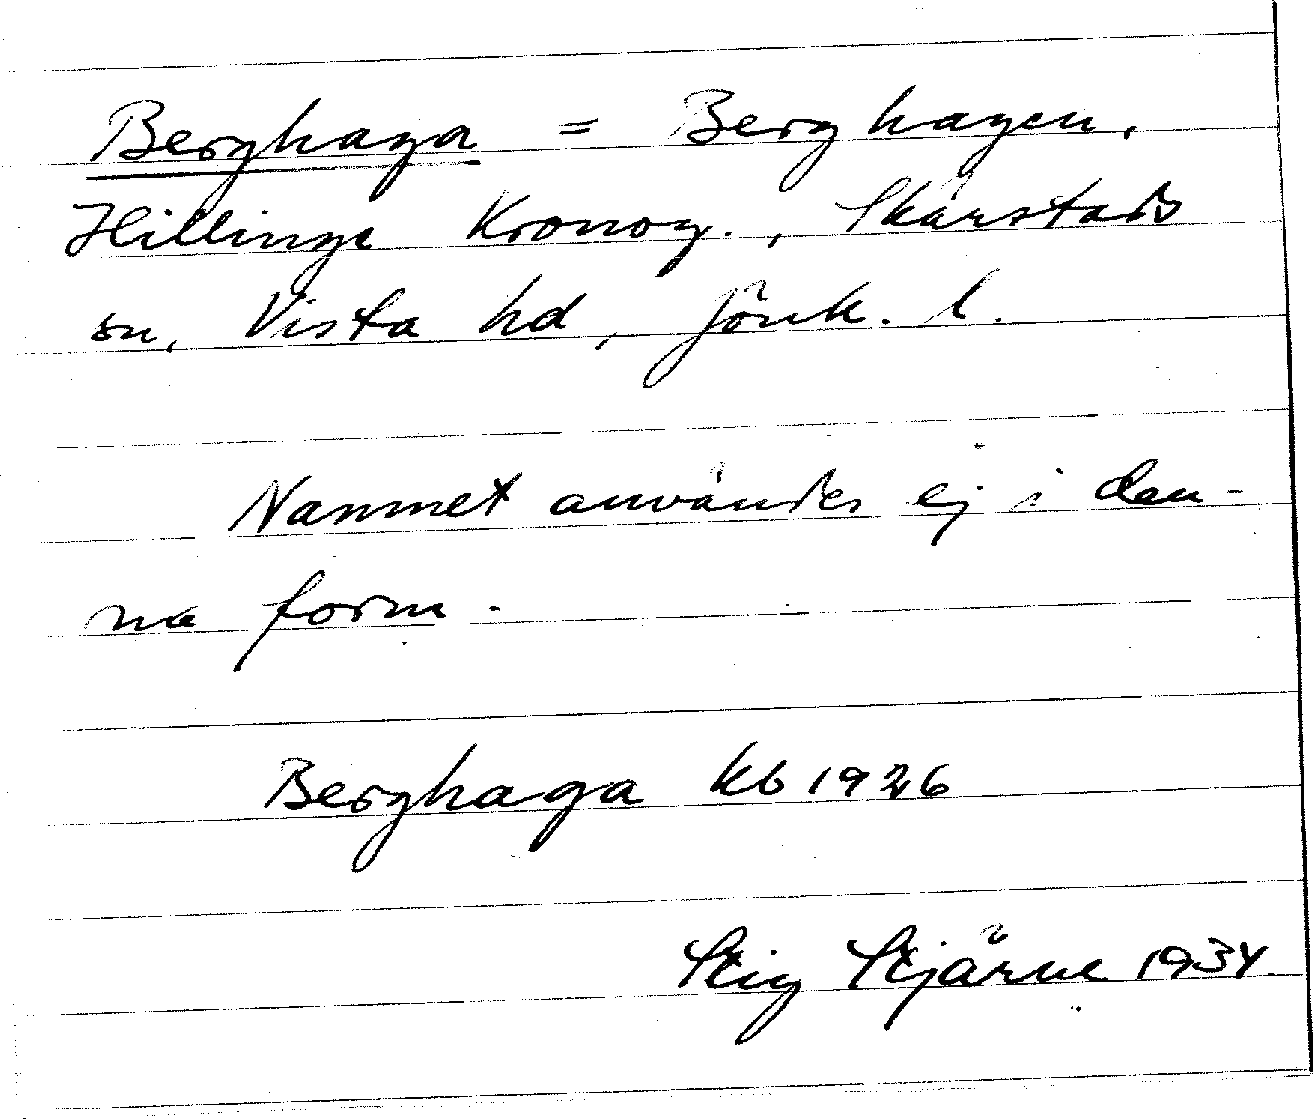 Berghaga = Berghagen,
Hillinge Kronog., Skärstads
sn, Vista hd, Jönk. l.
Namnet användes ej i den-
na form.
Berghaga kb 1926
Stig Stjärne 1934